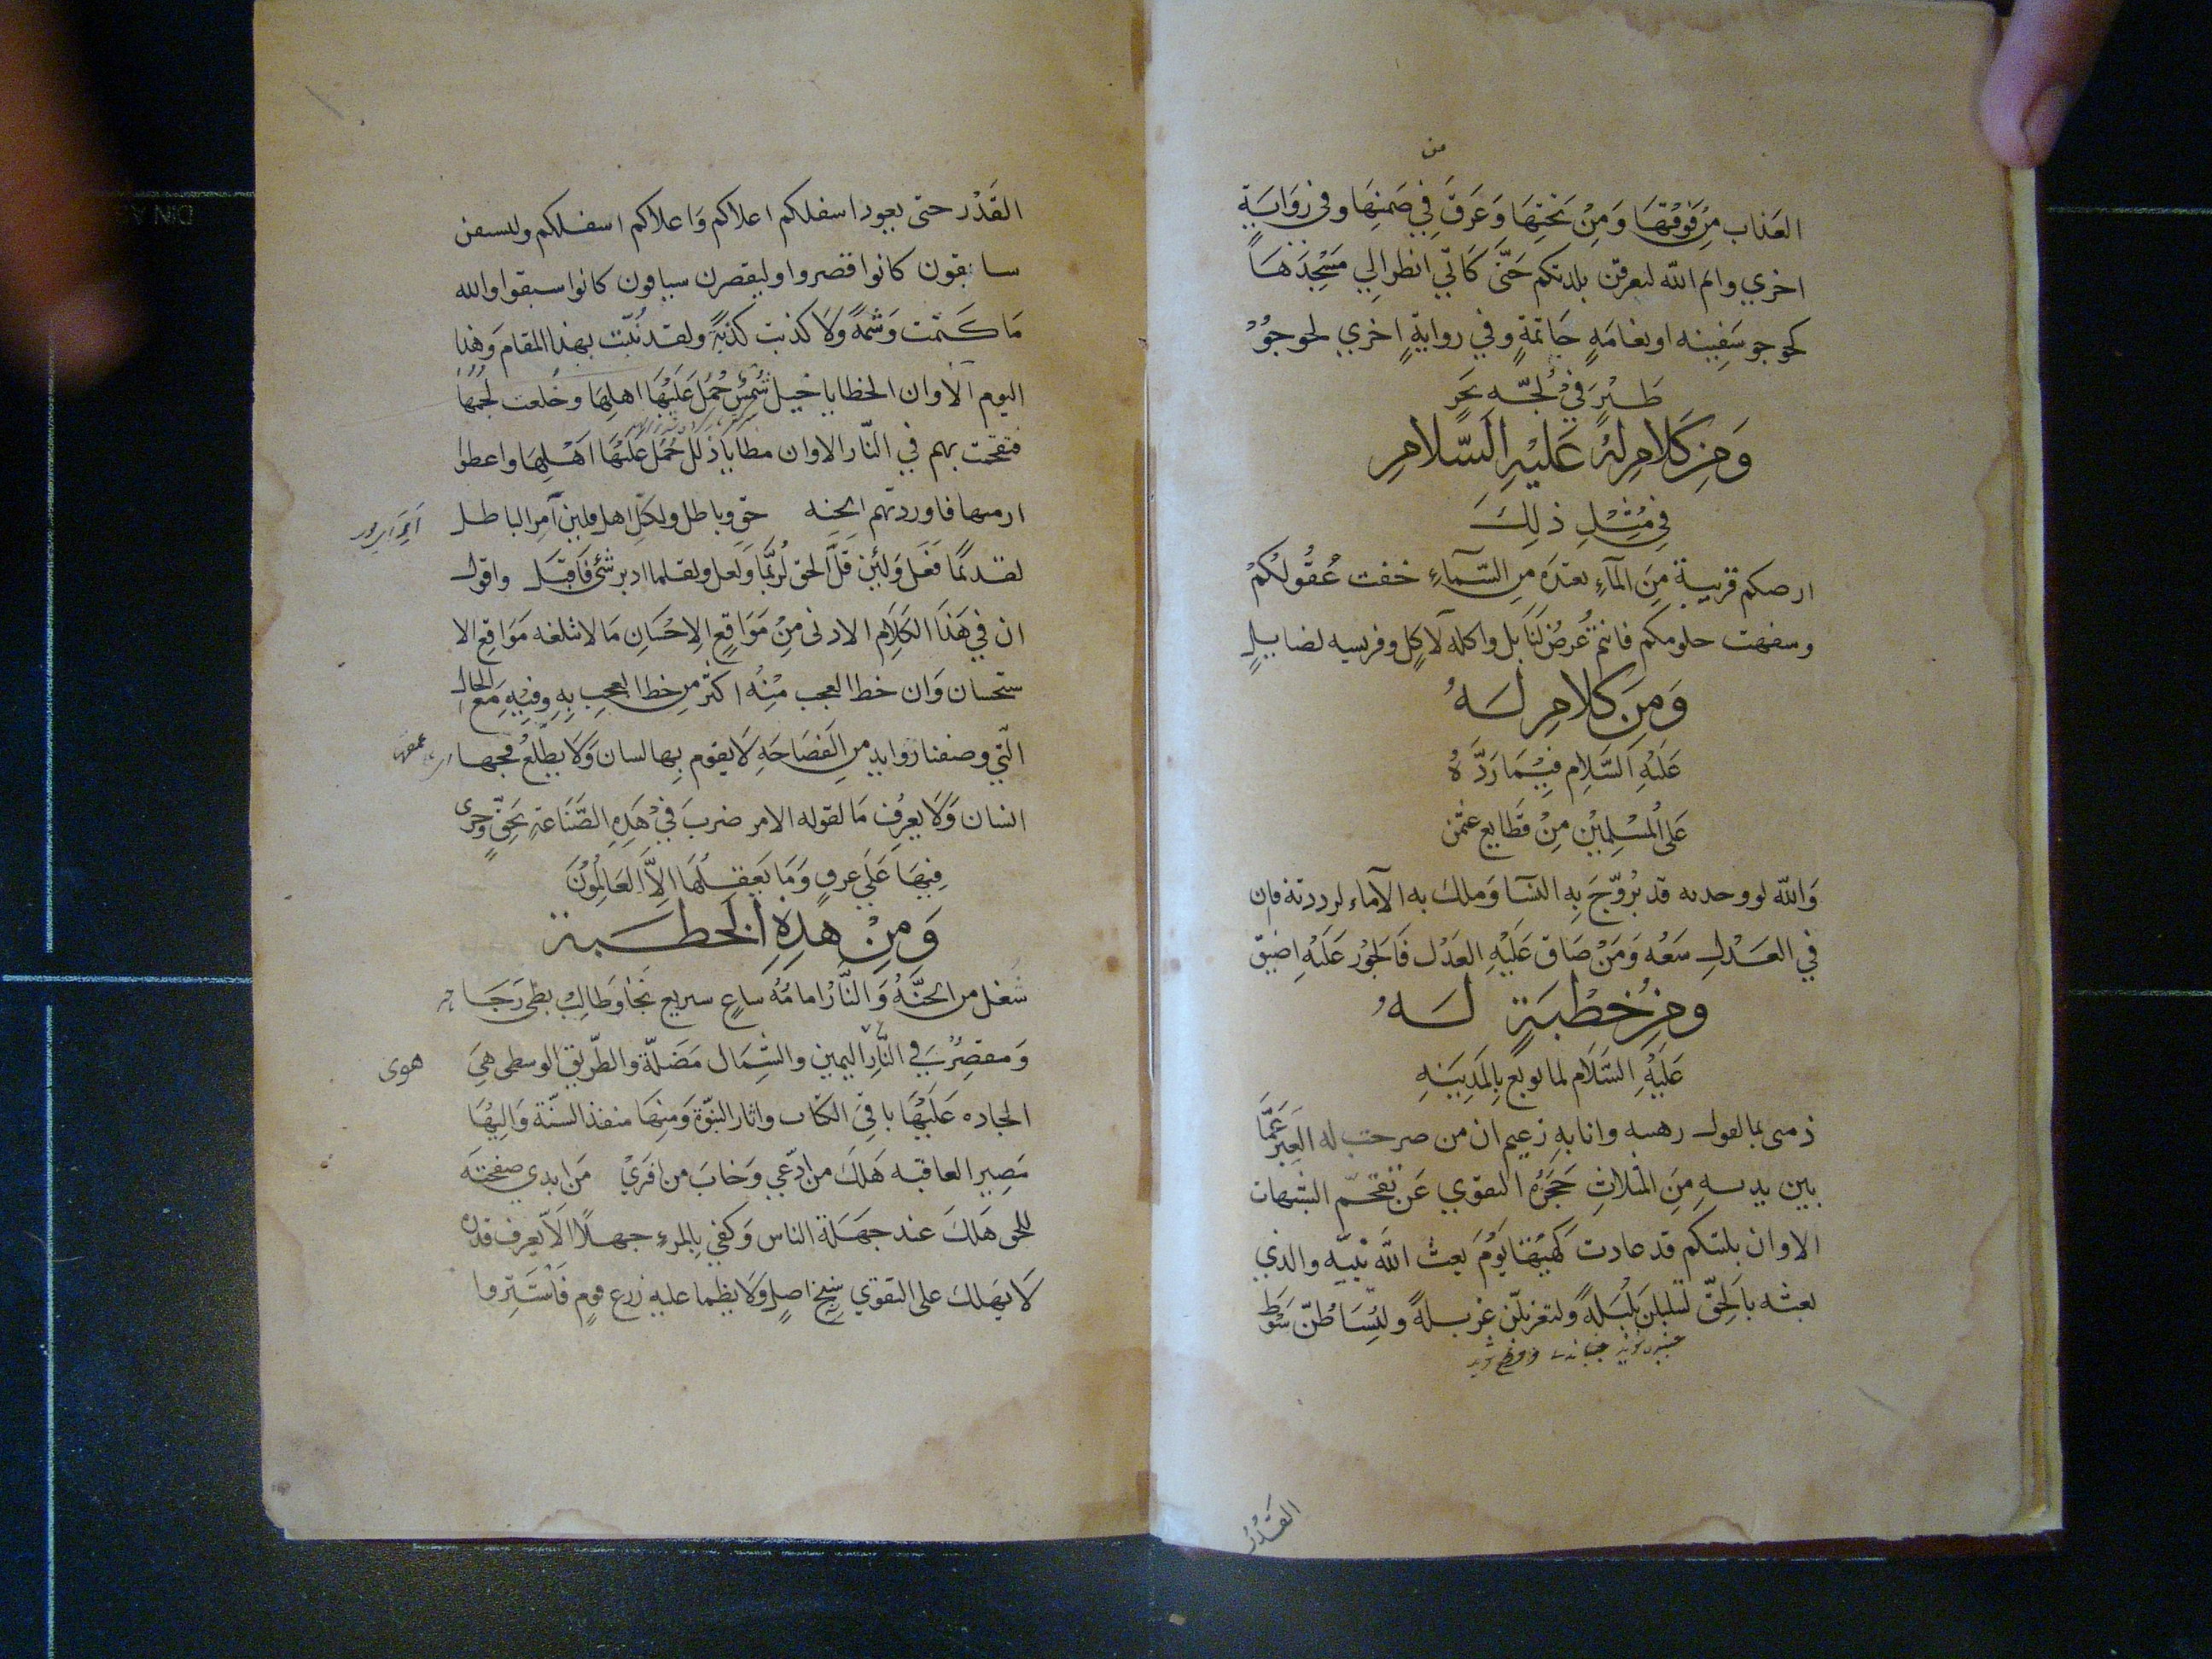 من
العَذاب مِن فَوقِهَا وَمِنْ تحتِهَا وَغَرَقَ فِي ضمنِهَا وفى رِوَايَةٍ
اخري وايم الله لتغرقن بلدتكم حَتّى كَانّي انظر الِي مَسْجِدَهَا
كجوجو سَفِينه او نعامَهٍ جَاثمةٍ وفي روايةٍ اخري لجوجوُ
طَيْرٍ فِي لُجّه بَحرٍ
وَمِن كَلامٍ لهُ عَليْهِ السَّلامِ
فِي مِثْلِ ذلِكَ
ارضكم قريبة مِنَ المآءِ بعيدَه مِن السَّمآءِ خفت عُقُولكُمْ
وسفهت حلومكم فانتم غُرضُ لنَابل واكله لآكِل وفريسه لصايِلٍ
وَمِنَ كَلامِ لَه
عَليْهِ السَّلامِ فِيْمَا رَدَّهُ
عَلى المُسْلِمِيْن مِنْ قَطَايع عثمن
وَالله لو وجدته قد تزوّجَ بِهِ النسَآ وَملكَ به الآماء لرددته فان
في العَدْلِ سَعُه وَمَنْ ضَاقَ عَلَيْهِ العَدْل فَالجَوْر عَلَيْهِ اضيق
ومِن خُطْبَةٍ لَه
عَلَيْهِ السَّلَام لما بويع بِالمَدِيَنهِ
ذمتى بما اقول رهينه وانا بهِ زعيم ان من صرحت له العِبَر عَمَّا
بين يديه مِنَ المثلاثِ حَجَزهُ التقوي عَن تقحّم الشبهات
الا وان بليتكم قد عادت كَهيئتهَا يَوْمَ بعث اللَّه نبيّه والذي
بعثه بَالحِقّ لتبلبلن بَلْبَلةً ولتغربلنّ غربلةً ولتُسَاطُنّ سَوْط
القَدْر
القَدْر حتى يعود اسفلكم اعلاكم وَاعلاكم اسفلكم وليسبقن
سابقون كانوا قصروا وليقصرن سباقون كانوا سبقوا والله
مَا كَتمت وَشْمةً ولا كذبت كذبَةً ولقد نُبّئت بهذا المقام وَهذا
اليوم الا وان الخطايا خيل شُمُسٌ حُمِلَ عَلَيْهَا اهلهَا وخلعت لجُمهَا
فتقحمت بهم في النّار الا وان مطايا ذُلل حُمِلَ عَلَيْهَا اهْلهَا واعطوا
ازمتها فاوردتهم الجنه حق وباطل ولكلِ اهل فلين أمِر الباطل
لقديمًا فَعَل وَلئِن قَلَّ الحق لربَّمَا وَلعل ولقلما ادبر شَئ فَاَقبَل واقول
ان في هَذا الكَلامِ الادنى مِنْ مَوَاقعِ الاِحْسَانِ مَا لا تبلغه مَوَاقع الا
ستحسان وَان حظ العجب مِنْهُ اكثر مِن حظ العجبِ بِهِ وفِيْهِ مَع الحال
الّتي وصفنا زوايد مِن الفَصَاحَهِ لا يقوم بِها لسان وَلا يطّلعُ فجهَا
انسان وَلَا يعرِف مَا نقوله الا من ضربَ فيْ هَذِهِ الصَّنَاعَةِ بَحِقٍّ وَجرى
فِيهَا عَلَي عرقٍ وَمَا يَعقِلُهَا اِلاَّ العَالِمُوْنَ
وَمِنْ هَذِهِ الخطبة
شغل من الجنَّةُ وَالنَّارُ امامُهُ ساعٍ سريع نَجَا وَطَالِبْ بطى رَجَا
وَمقصِرٌ فِي النَّارِ اليمين والشِّمَال مَضَلّة والطّريق الوسطى هِيَ
هوى
الجاده عَلَيْهَا باقى الكتاب واثار النبّوة وَمِنهَا منفذ السنّة وَاليْهَا
مَصِير العاقبه هَلَكَ من ادّعي وَخابَ من افتَري مَن ابدي صفحتَه
للحق هَلكَ عند جَهَلَةِ الناس وَكفي بِالمرءِ جهلًا الاّ يعرف قدره
لَا يَهلك على التقوي سِنخ اصلٍ وَلَا يظما عليهِ زرع قومٍ فَاسْتَتِروا